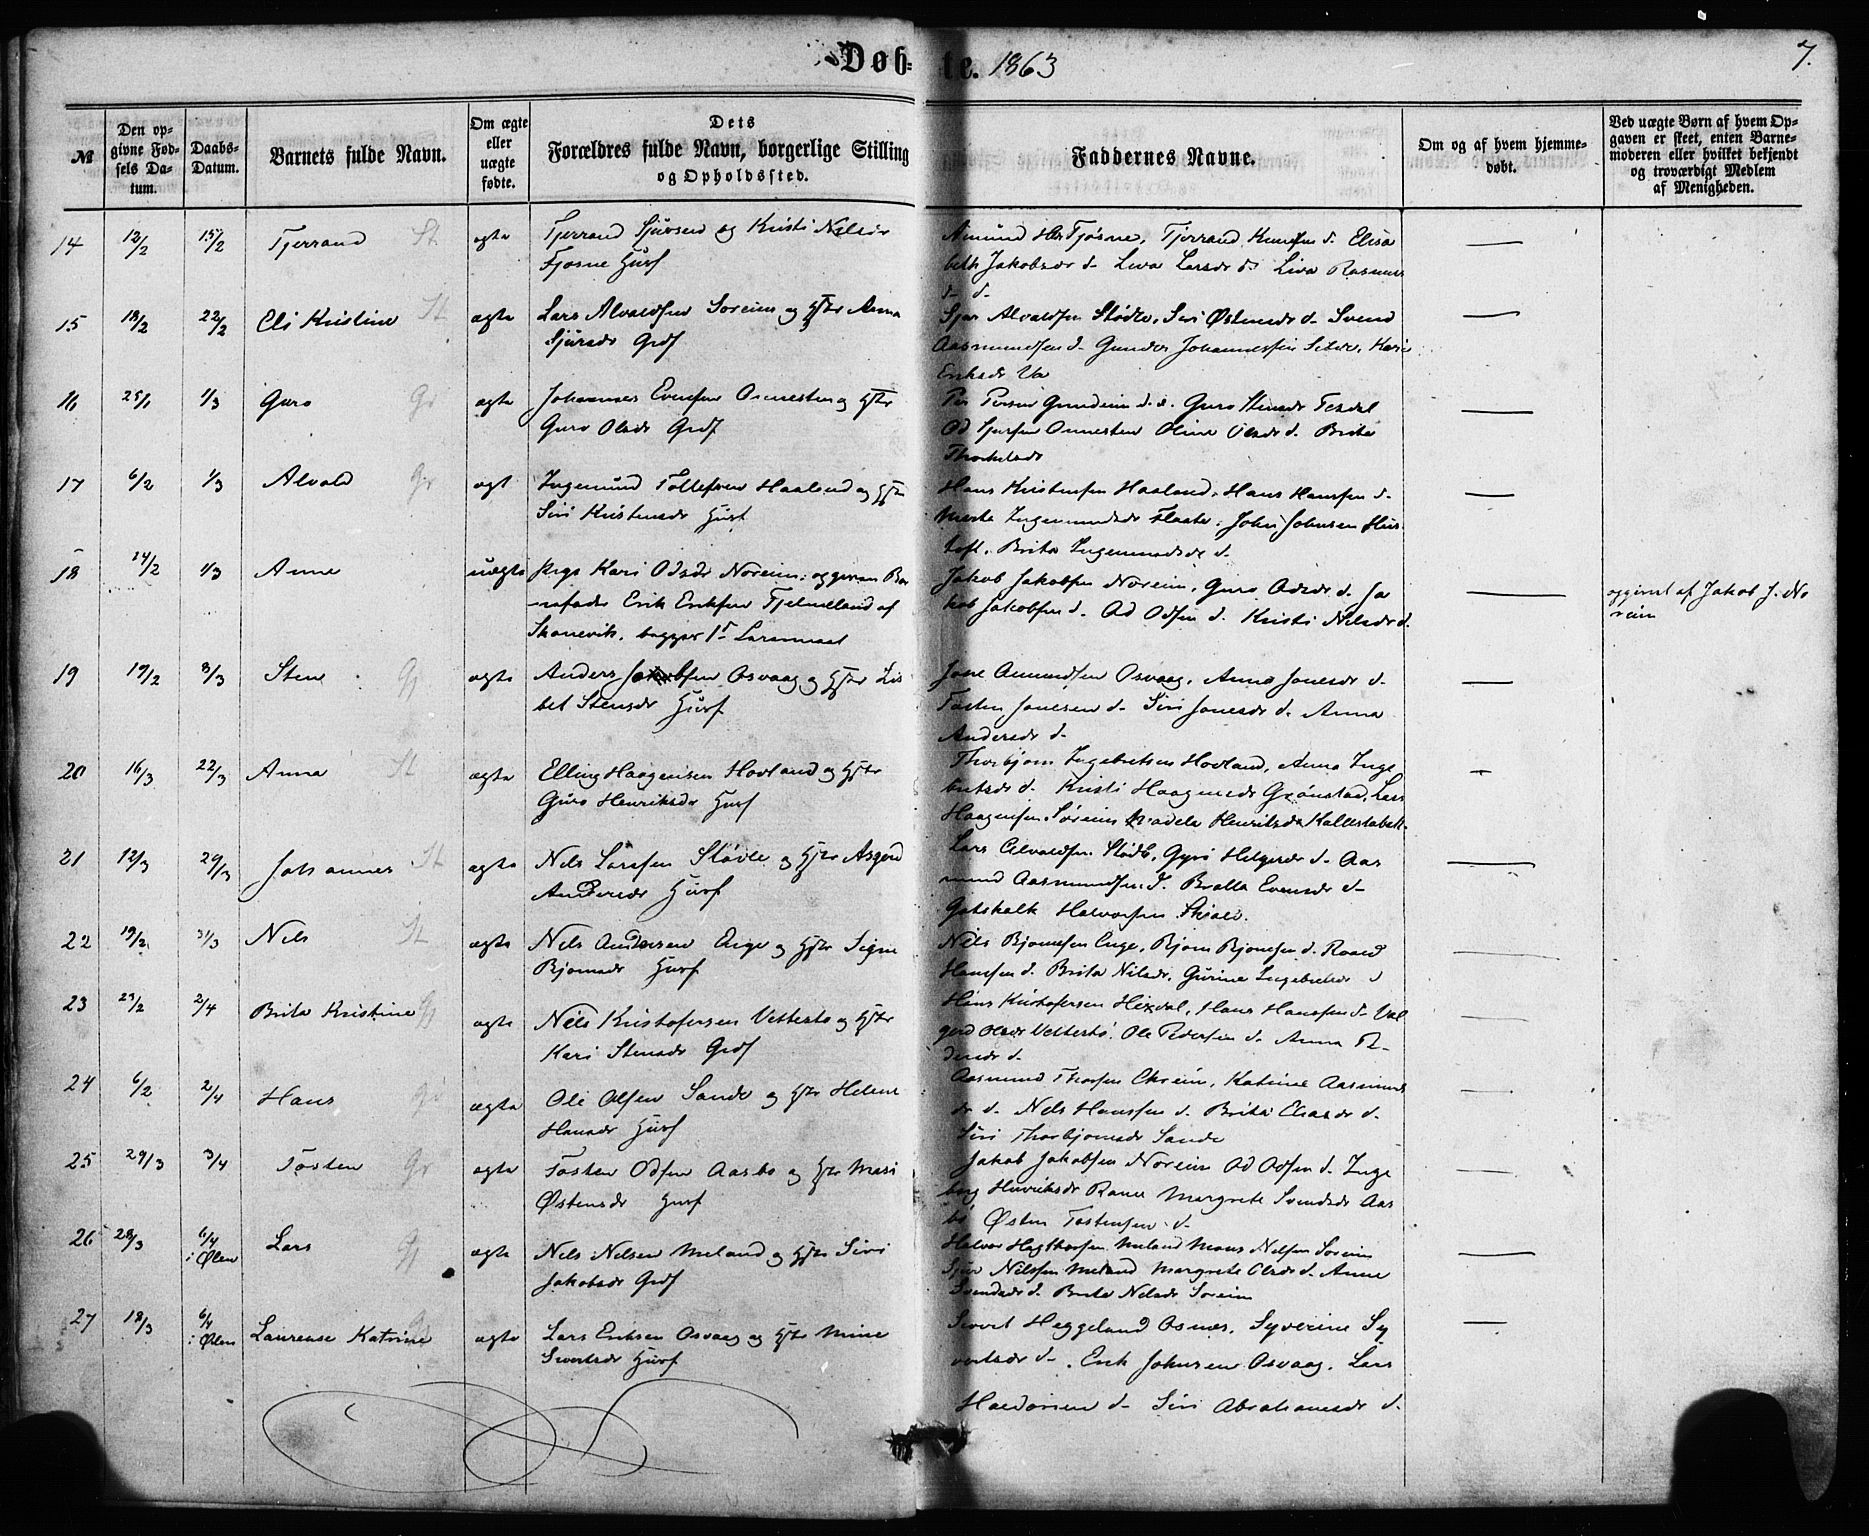 Døb-te. 1863
7.
№
Den opgivne Fødsels Datum.
Daabs-Datum.
Barnets fulde Navn.
Om ægte eller uægte fødte.
Dets Forældres fulde Navn, borgerlige Stilling og Opholdssted.
Faddernes Navne.
Om og af hvem hjemmedøbt.
Ved uægte Børn af hvem Opgaven er skeet, enten Barnemoderen eller hvilket bekjendt og troværdigt Medlem af Menigheden.
14 12/2 15/2 Tjerrand St ægte Tjerrand Sjursen og Kristi Nilsdr
Fjøsne Husf
Amund Fjøsne, Tjerrand Knudsen d. Elisa
beth Jakobsdr d- Liva Larsdr d. Liva Rasmus
d- d-
15 18/2 22/2 Eli Kristine St ægte Lars Alvaldsen Soreim og Hstr Anna
Sjursdr Grdf
Sjur Alvaldsen Stødle, Siri Østensdr d- Svend
Aasmundsen d- Gunder Johannessen Kari
Eriksdr
16 25/1 1/3 Guro Gr ægte Johannes Evensen Ornesten og Hstr
Guro Olsdr Grdf
Per Persen Grindeim d. Guro Stensdr Tesdal
Od Sjursen Ornesten Oline Olsdr d. Brita
Thorkelsdr
17 6/2 1/3 Alvald Gr ægt Ingemund Tollefsen Haaland og Hstr
Siri Kristensdr Husf
Hans Kristensen Haaland, Hans Hansen d-
Marta Ingemundsdr Flaate, John Johnsen Hus
toft, Brita Ingemundsdr d-
18 24/2 1/3 Anne uægte Pige Kari Odsdr Noreim; opgiven Bar
nefader Erik Eriksen Fjelmeland af
Skonevik, begges 1ste Leiermaal
Jakob Jakobsen Noreim, Guro Odsdr d. Ja
kob Jakobsen d. Od Odsen d. Kristi Nilsdr d.
opgivet af Jakob J. No
reim
19 19/2 8/3 Sten Gj ægte Anders Jakobsen Osvaag og Hstr Lis
bet Stensdr Husf
Jone Amundsen Osvaag, Anna Jonesdr d-
Tosten Jonesen d- Siri Jonesdr d. Anna
Andersdr d-
20 16/3 22/3 Anna St ægte Elling Haagensen Hovland og Hstr
Guro Henriksdr Husf
Thorbjørn Ingebretsen Hovland, Anna Inge
bretsdr d- Kristi Haagensdr Grønstad, Lars
Haagensen Søreim Madela Henriksdr
21 12/3 29/3 Johannes St ægte Nils Larsen Stødle og Hstr Asgerd
Andersdr Husf
Lars Alvaldsen Stødle, Gyri Helgesdr d- Aas
mund Aasmundsen d. Brolla Evensdr d-
Gotskalk Halvorsen
22 19/2 31/3 Nils St ægte Nils Andersen Enge og Hstr Signe
Bjørnsdr Husf
Nils Bjørnsen Enge, Bjørn Bjørnsen d. Roald
Hansen d. Brita Nilsdr, Gurine Ingebretsdr d
23 23/2 2/4 Brita Kristine Gj ægte Nils Kristofersen Vettestø og Hstr
Kari Stensdr Grdf
Hans Kristofersen Hisdal, Hans Hansen d- Val
gerd Olsdr Vettestø, Ole Pedersen d. Anna Pe
dersdr d-
24 6/2 2/4 Hans Gr ægte Ole Olsen Sande og Hstr Helene
Hansdr Husf
Aasmund Thorsen Ekreim, Katrine Aasmunds
dr d- Nels Hansen d- Brita Eliasdr d-
Siri Thorbjørnsdr Sande
25 29/3 3/4 Tosten Gr ægte Tosten Odsen Aasbø og Hstr Mari
Østensdr Husf
Jakob Jakobsen Noreim Od Odsen d- Inge
borg Henriksdr Rønes Margrete Svendsdr Aas
bø Østen Tostensen d-
26 28/3 6/4 i Ølen Lars Gj ægte Nels Nelsen Meland og Hstr Siri
Jakobsdr Grdf
Halvor Hegthorsen Meland Mons Nelsen Soreim
Sjur Nilssen Meland Margrete Olsdr d. Anne
Svendsdr d. Brita Nelsdr Soreim
27 18/3 6/4 i Ølen Laurense Katrine ægte Lars Eriksen Osvaag og Hstr Mine
Sivertsdr Husf
Sivert Heggeland Osnes, Syverine Sy
vertsdr d- Erik Johnsen Osvaag, Lars
Haldorsen d- Siri Abrahamsdr d-